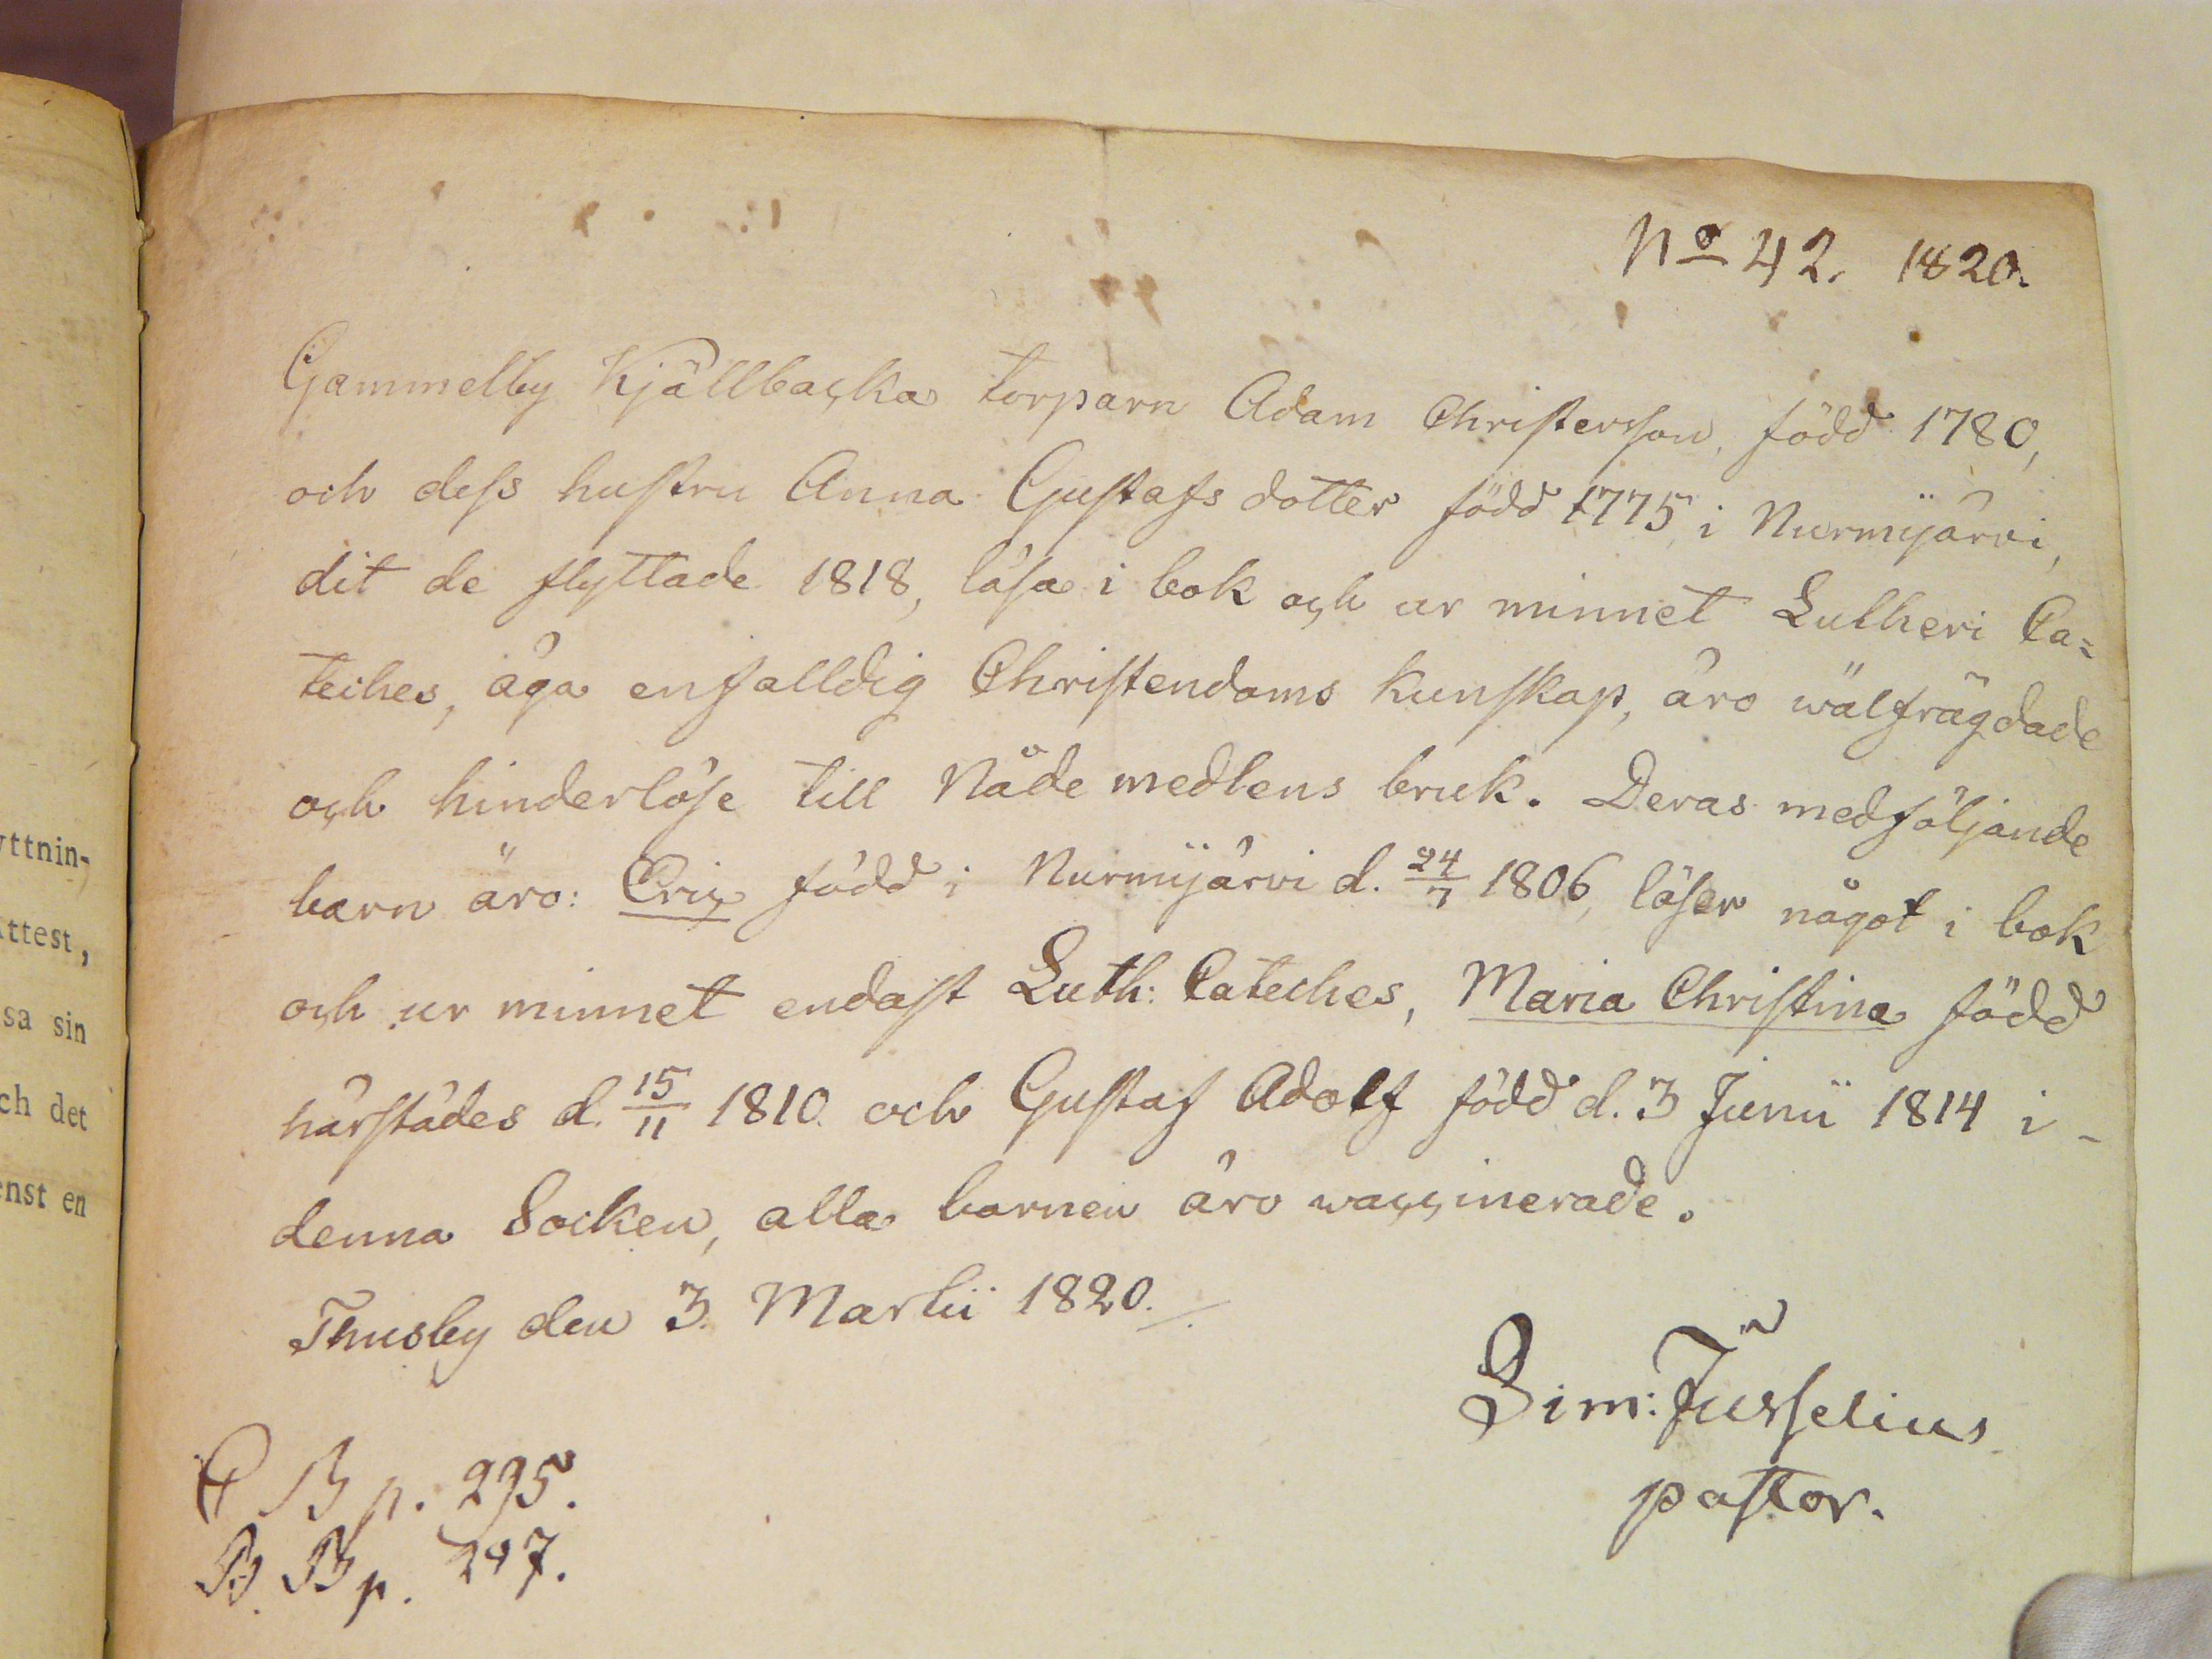 No 42. 1820.
Gammelby Kjällbacka torparn Adam Christersson, född 1780,
och dess hustru Anna Gustafs dotter född 1775 i Nurmijärvi,
dit de flyttade 1818, läsa i bok och ur minnet Lutheri Ca=
teches, äga enfalldig Christendoms kunskap, äro wälfrägdade
och hinderlöse till Nåde medlens bruk. Deras medföljande
barn äro: Eric född i Nurmijärvi d. 24/7 1806, läser något i bok
och ur minnet endast Luth: Cateches, Maria Christina född
härstädes d. 15/11 1810. och Gustaf Adolf född d. 3 Junii 1814 i -
denna Socken, alla barnen äro waccinerade.
Thusby den 3. Martii 1820.
Sim: Jusselius
pastor.
B p. 295.
B. B p. 247.
yttnin-
Attest,
sa sin
ch det
enst en